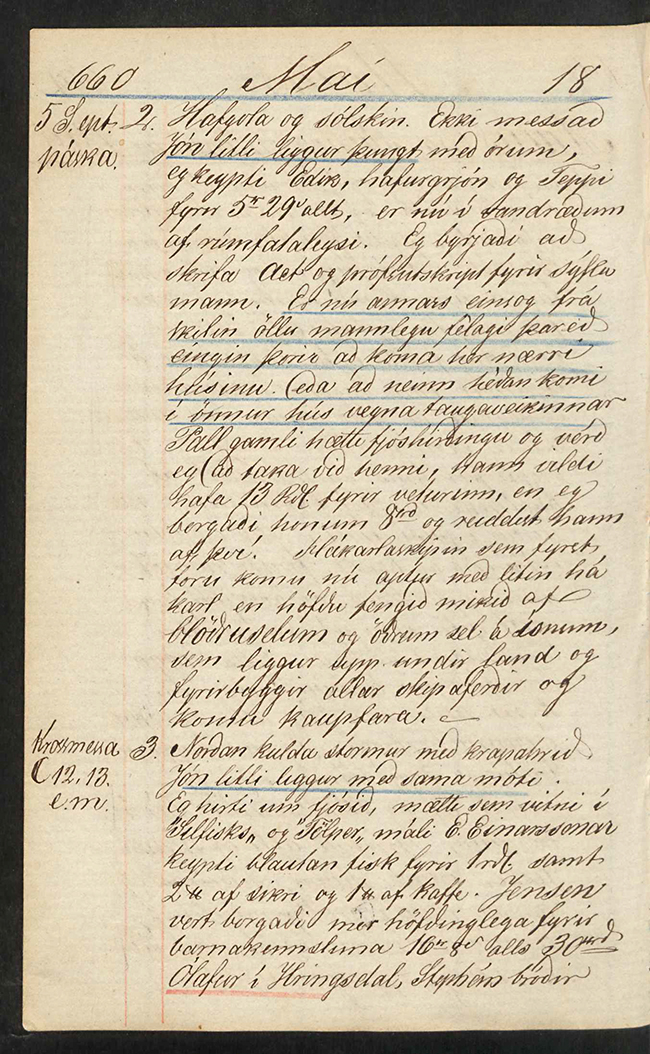 660 Maí 18
5 S. ept. 2. Hafgola og sólskin. Ekki messað
páska. Jón litli liggur þungt með órum,
eg keypti Edik, hafurgrjón og Teppi
fyrir 5r 29s allt, er nú í vandræðum
af rúmfataleysi. Eg byrjaði að
skrifa Act og prófsutskript fyrir sýslu
mann. Er nú annars einsog frá
skilin öllu mannlegu félagi þareð
eingin þorir að koma hér nærri
húsinu. (eða að neinn héðan komi
í önnur hús vegna taugaveikinnar
Páll gamli hætti fjóshirðingu og verð
eg að taka við henni, hann vildi
hafa 13 rdl fyrir veturinn, en eg
borgaði honum 8rd og reiddist hann
af því. Hákarlaskipin sem fyrst
fóru komu nú aptur með lítin há
karl en höfðu fengið mikið af
blöðruselum og öðrum sel á ísnum,
sem liggur upp undir land og
fyrirbyggir allar skipaferðir og
komu kaupfara.
Krossmessa 3. Norðan kulda stormur með krapahríð
12.13. Jón litli liggur með sama móti.
e.m. Eg hirti um fjósið, mætti sem vitni í
"Selfisks" og "Sölper" máli E. Einarssonar
keypti blautan fisk fyrir 1rdl. samt
2 af sikri og 1 af kaffe. Jensen
vert borgaði mér höfðinglega fyrir
barnakennsluna alls 30
Ólafur í Hringsdal, Stephán bróðir